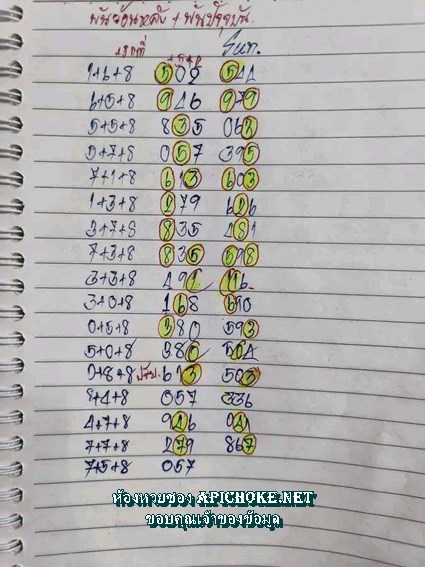 พันย้อนหลัง + พันปัจจุบัน
1+6+8 502 544
6+5+8 946 979
5+5+8 835 063
5+7+8 057 395
7+1+8 613 603
1+3+8 279 626
3+7+8 835 481
7+3+8 835 598
3+3+8 491 116
3+0+8 168 610
0+5+8 380 593
5+0+8 380 504
0+8+8 613 503
8+4+8 057 336
4+7+8 946 041
7+7+8 279 867
7+5+8 057
ห้องหวยซอง APICHOKE.NET
ขอบคุณเจ้าของข้อมูล